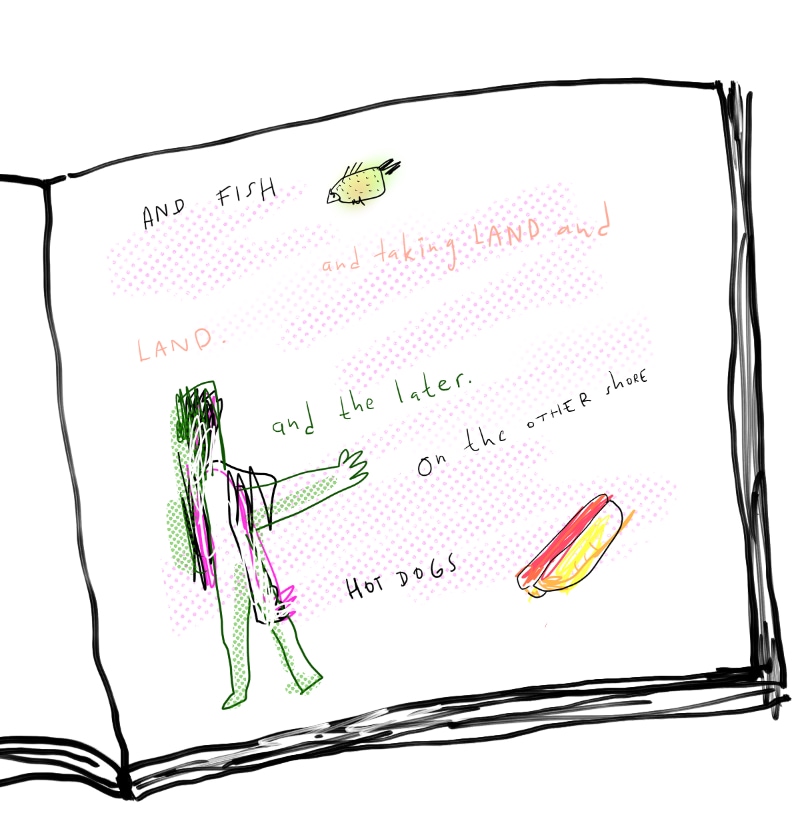 AND FISH
and taking LAND and
LAND.
and the later.
on the OTHER shORE
HOT DOGS